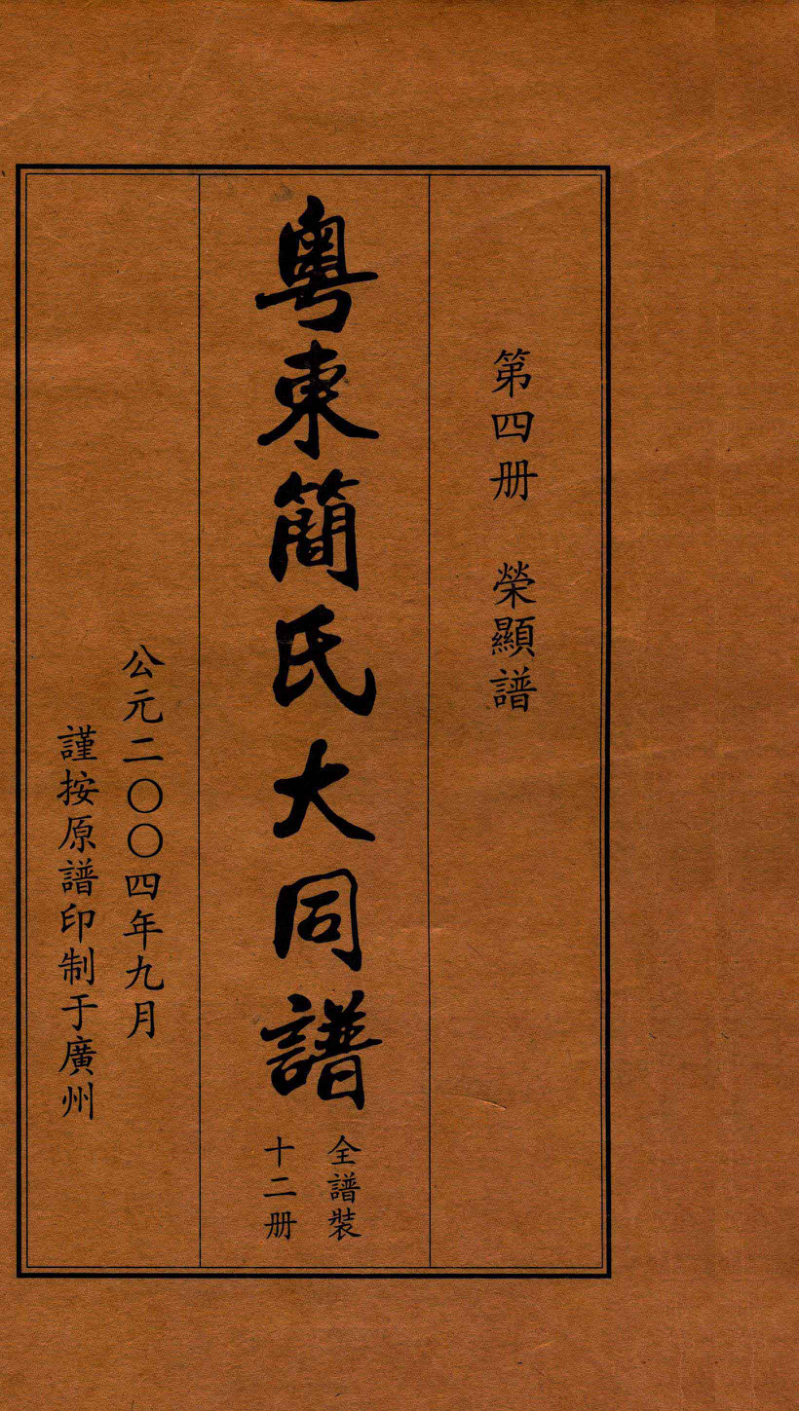 第四册　榮顯譜
粤東簡氏大同譜
全譜裝
十二册
公元二〇〇四年九月
謹按原譜印制于廣州